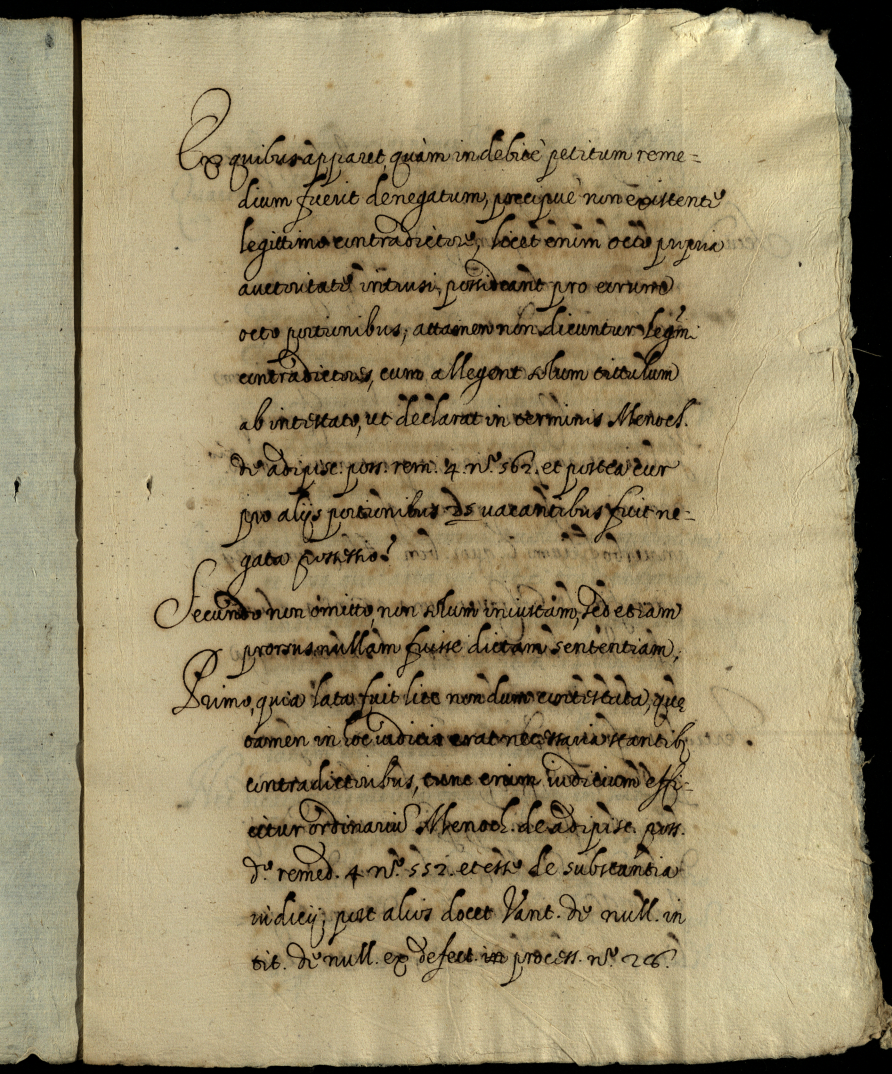 Ex quibus apparet, quàm indebitè petitum reme=
dium fuerit denegatum, precipuè non existente
legittimo contradictore, licet enim octo propria
auctoritate intrusi, possideant pro eorum
octo portionibus, attamen non dicuntur legmi
contradictores, cum allegent solum titulum
ab intestato, ut declarat in terminis Menoch.
de adipisc. poss. rem. 4. nº. 562. et postea cur
pro alijs portionibus vacantibus fuit ne=
gata possessio?
Secundo non omitto, non solum iniustam, sed etiam
prorsus nullam fuisse dictam sententiam,
Primo, quia lata fuit lite non dum contestata, quę
tamen in hoc iudicio erat necessaria stantibꝫ
contradictoribus, tunc enim iudicium effi=
citur ordinariũ Menoch. de adipisc. poss.
dº. remed. 4 nº. 552. et esse de substantia
iudicij, post alios docet Vant. de null. in
tit. de null. ex defect. in process. nº. 26.